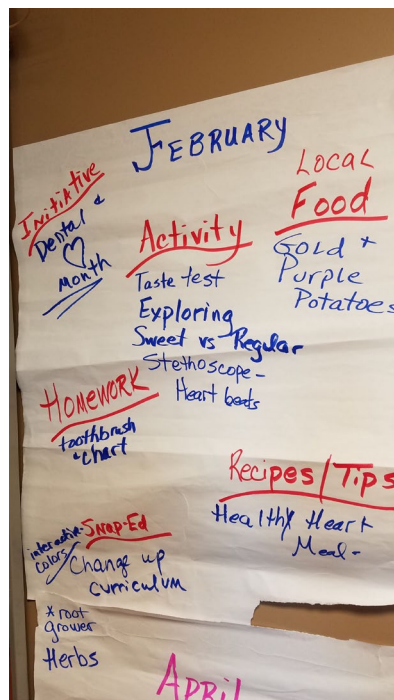 FEBRUARY
Initiative
Dental &
♡
month
Activity
Taste test
Exploring
Sweet vs Regular
Stethoscope -
Heart beats
Local
Food
Gold +
Purple
Potatoes
Homework
toothbrush
& chart
Recipes/Tips
Healthy Heart
Meal -
Snap-Ed
colors
Change up
curriculum
* root
grower
Herbs
APRIL